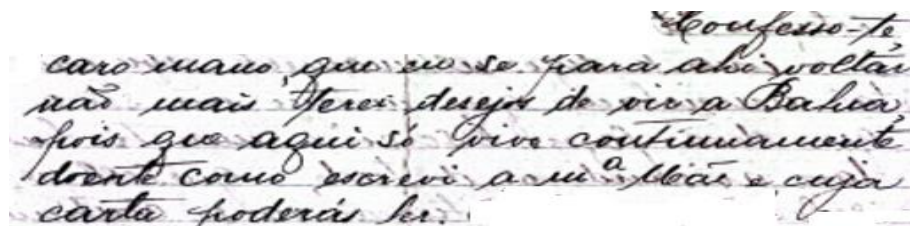 Confesso-te
caro mano, que eu se para ahi voltár
não mais terei desejos de vir a Bahia,
pois que aqui só vivo continuamente
doente como escrevi a mª Mãe e cuja
carta poderás ler.